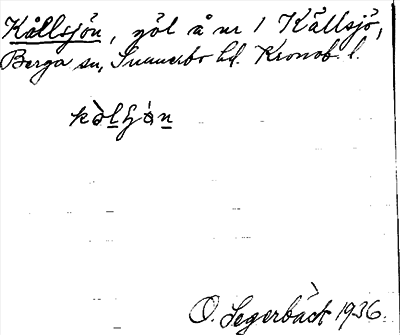 Kållsjön, göl å nr 1 Kållsjö,
Berga sn, Sunnerbo hd. Kronob. l.
kòlʃön
O. Segerbäck 1936.